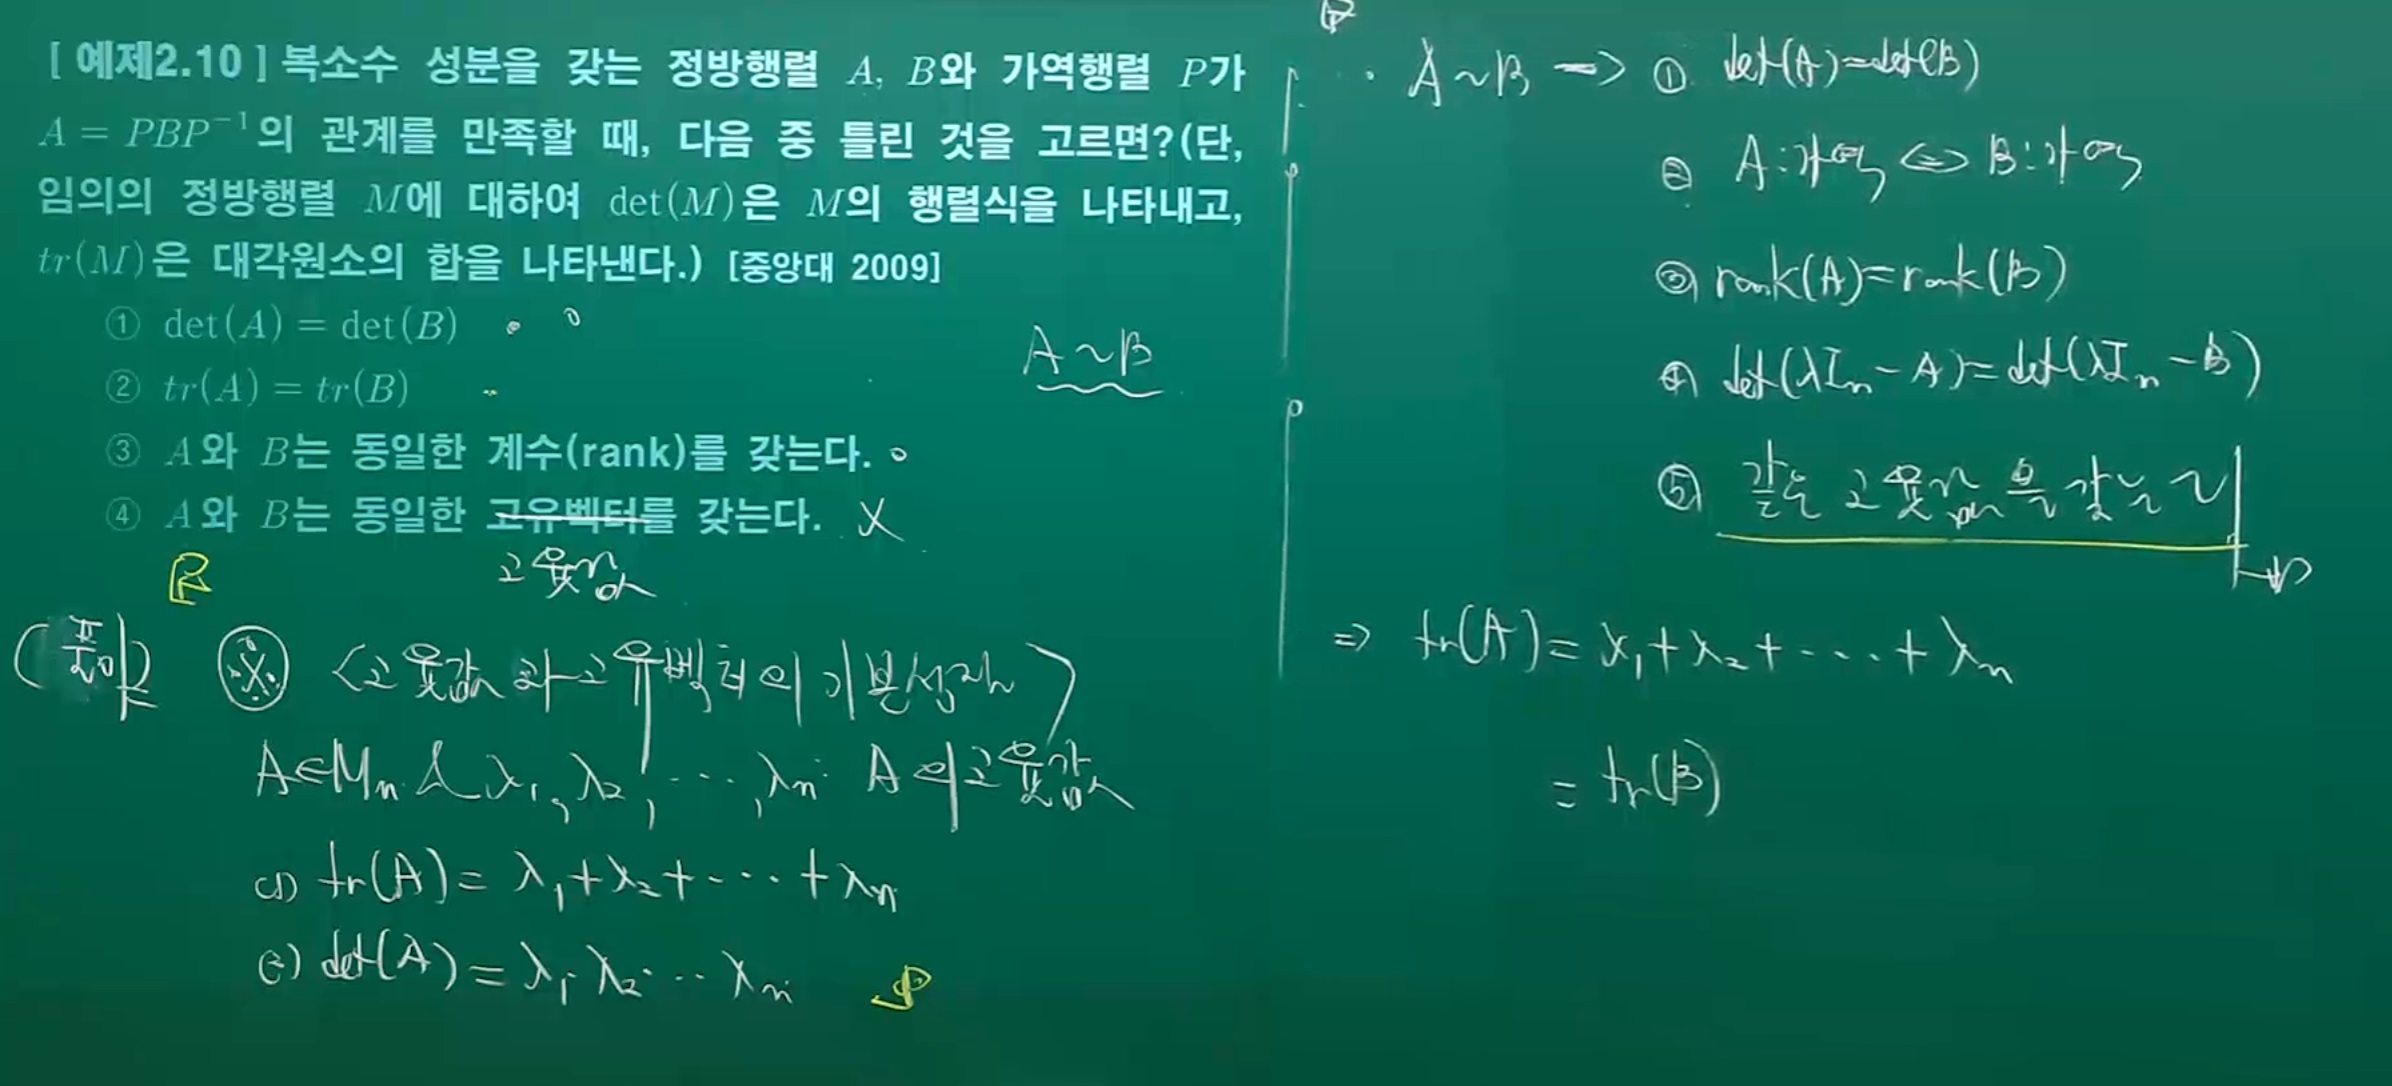 [예제2.10] 복소수 성분을 갖는 정방행렬 A, B와 가역행렬 P가
A = PBP⁻¹의 관계를 만족할 때, 다음 중 틀린 것을 고르면?(단,
임의의 정방행렬 M에 대하여 det(M)은 M의 행렬식을 나타내고,
tr(M)은 대각원소의 합을 나타낸다.) [중앙대 2009]
① det(A) = det(B)
② tr(A) = tr(B)
③ A와 B는 동일한 계수(rank)를 갖는다.
④ A와 B는 동일한 고유벡터를 갖는다. X
고윳값
A~B
(풀이)
<고윳값과 고유벡터의 기본성질>
A∈Mn & λ1, λ2, ···, λn: A의 고윳값
(1) tr(A) = λ1+λ2+···+λn
(2) det(A) = λ1·λ2···λn
A~B => ① det(A)=det(B)
② A:가역 <=> B:가역
③ rank(A)=rank(B)
④ det(λIn-A)=det(λIn-B)
⑤ 같은 고윳값을 갖는다
=> tr(A) = λ1+λ2+···+λn
= tr(B)